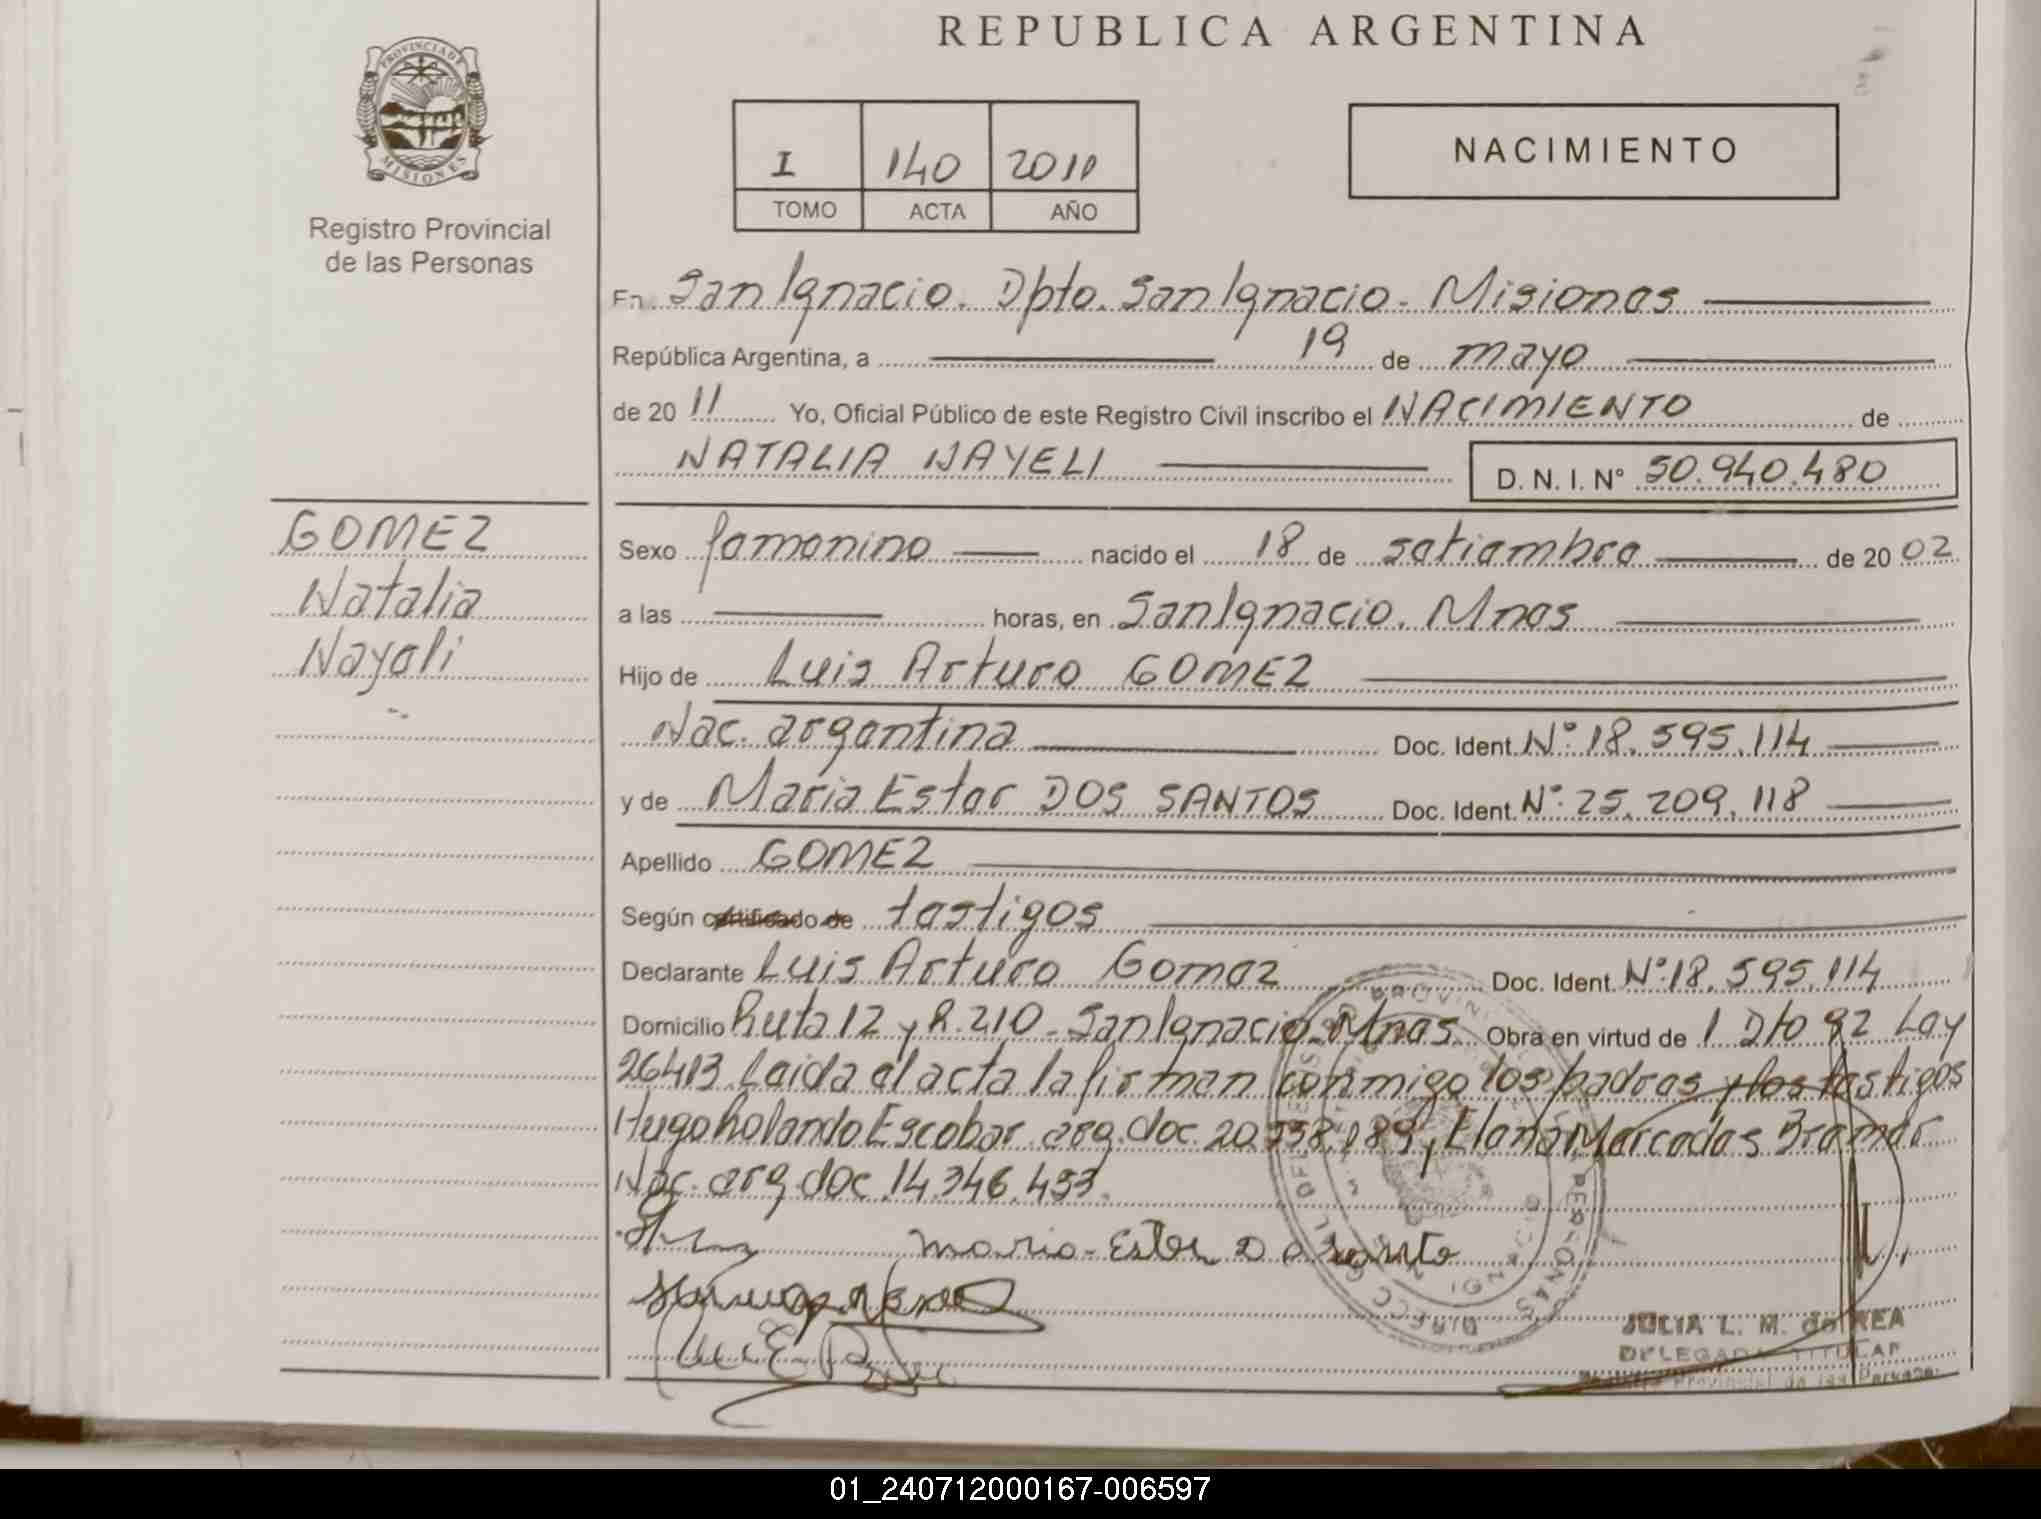 REPUBLICA ARGENTINA
PROVINCIA DE
MISIONES
Registro Provincial
de las Personas
I 140 2011
TOMO ACTA AÑO
NACIMIENTO
En San Ignacio. Dpto. San Ignacio - Misiones
República Argentina, a 19 de mayo
de 20 11 Yo, Oficial Público de este Registro Civil inscribo el NACIMIENTO de
NATALIA NAYELI D. N. I. N° 50.940.480
GOMEZ
Natalia
Nayeli
Sexo femenino nacido el 18 de setiembre de 20 02
a las horas, en San Ignacio. Mnes
Hijo de Luis Arturo GOMEZ
Nac. argentina Doc. Ident. N° 18.595.114
y de Maria Ester DOS SANTOS Doc. Ident. N° 25.209.118
Apellido GOMEZ
Según certificado de testigos
Declarante Luis Arturo Gomez Doc. Ident. N° 18.595.114
Domicilio Ruta 12 y R. 210 - San Ignacio. Mnes. Obra en virtud de 1 Dto 92 Ley
26413 Leida el acta la firman conmigo los padres y los testigos
Hugo Rolando Escobar arg. doc. 20. y Elena Mercedes Bramer
Nac. arg. doc. 14.346.453.
JULIA L. M. de REA
DELEGADA TITULAR
Registro Provincial de las Personas
01_240712000167-006597